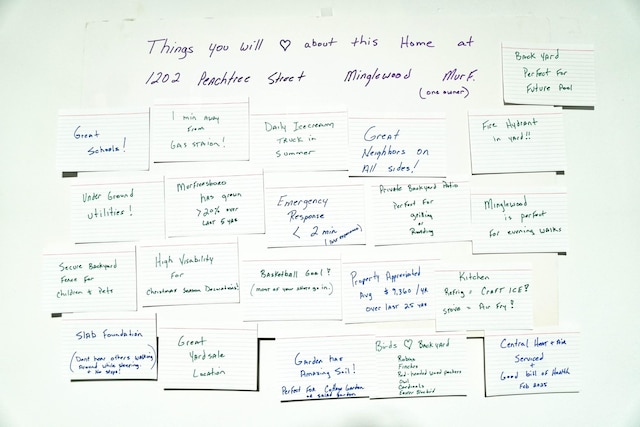 Things you will ♡ about this Home at
1202 Peachtree Street Minglewood Murf.
(one owner)
Back yard
Perfect For
Future Pool
Great
Schools!
1 min away
From
GAS STATION!
Daily Icecream
TRUCK in
Summer
Great
Neighbors on
All sides!
Fire Hydrant
in yard!!
Under Ground
utilities!
Murfreesboro
has grown
>20% over
Last 5 yrs
Emergency
Response
< 2 min
Private Backyard Patio
Perfect For
grilling
or
Reading
Minglewood
is perfect
for evening walks
Secure Backyard
Fence For
Children & Pets
High Visability
For
Christmas Season Decorations!
Basketball Goal?
(most of your shots go in.)
Property Appreciated
Avg $ 7,360 /yr
over last 25 yrs
Kitchen
Refrig = Craft ICE?
Stove = Air Fry?
Slab Foundation
(Dont hear others walking
Around while sleeping.
+ No steps!)
Great
Yardsale
Location
Garden has
Amazing Soil!
Perfect For Cottage Garden
or salad garden
Birds ♡ Backyard
Robins
Finches
Red-headed Wood peckers
Owl
Cardinals
Easter Bluebird
Central Heat + Air
Serviced
+
Good bill of Health
Feb 2025